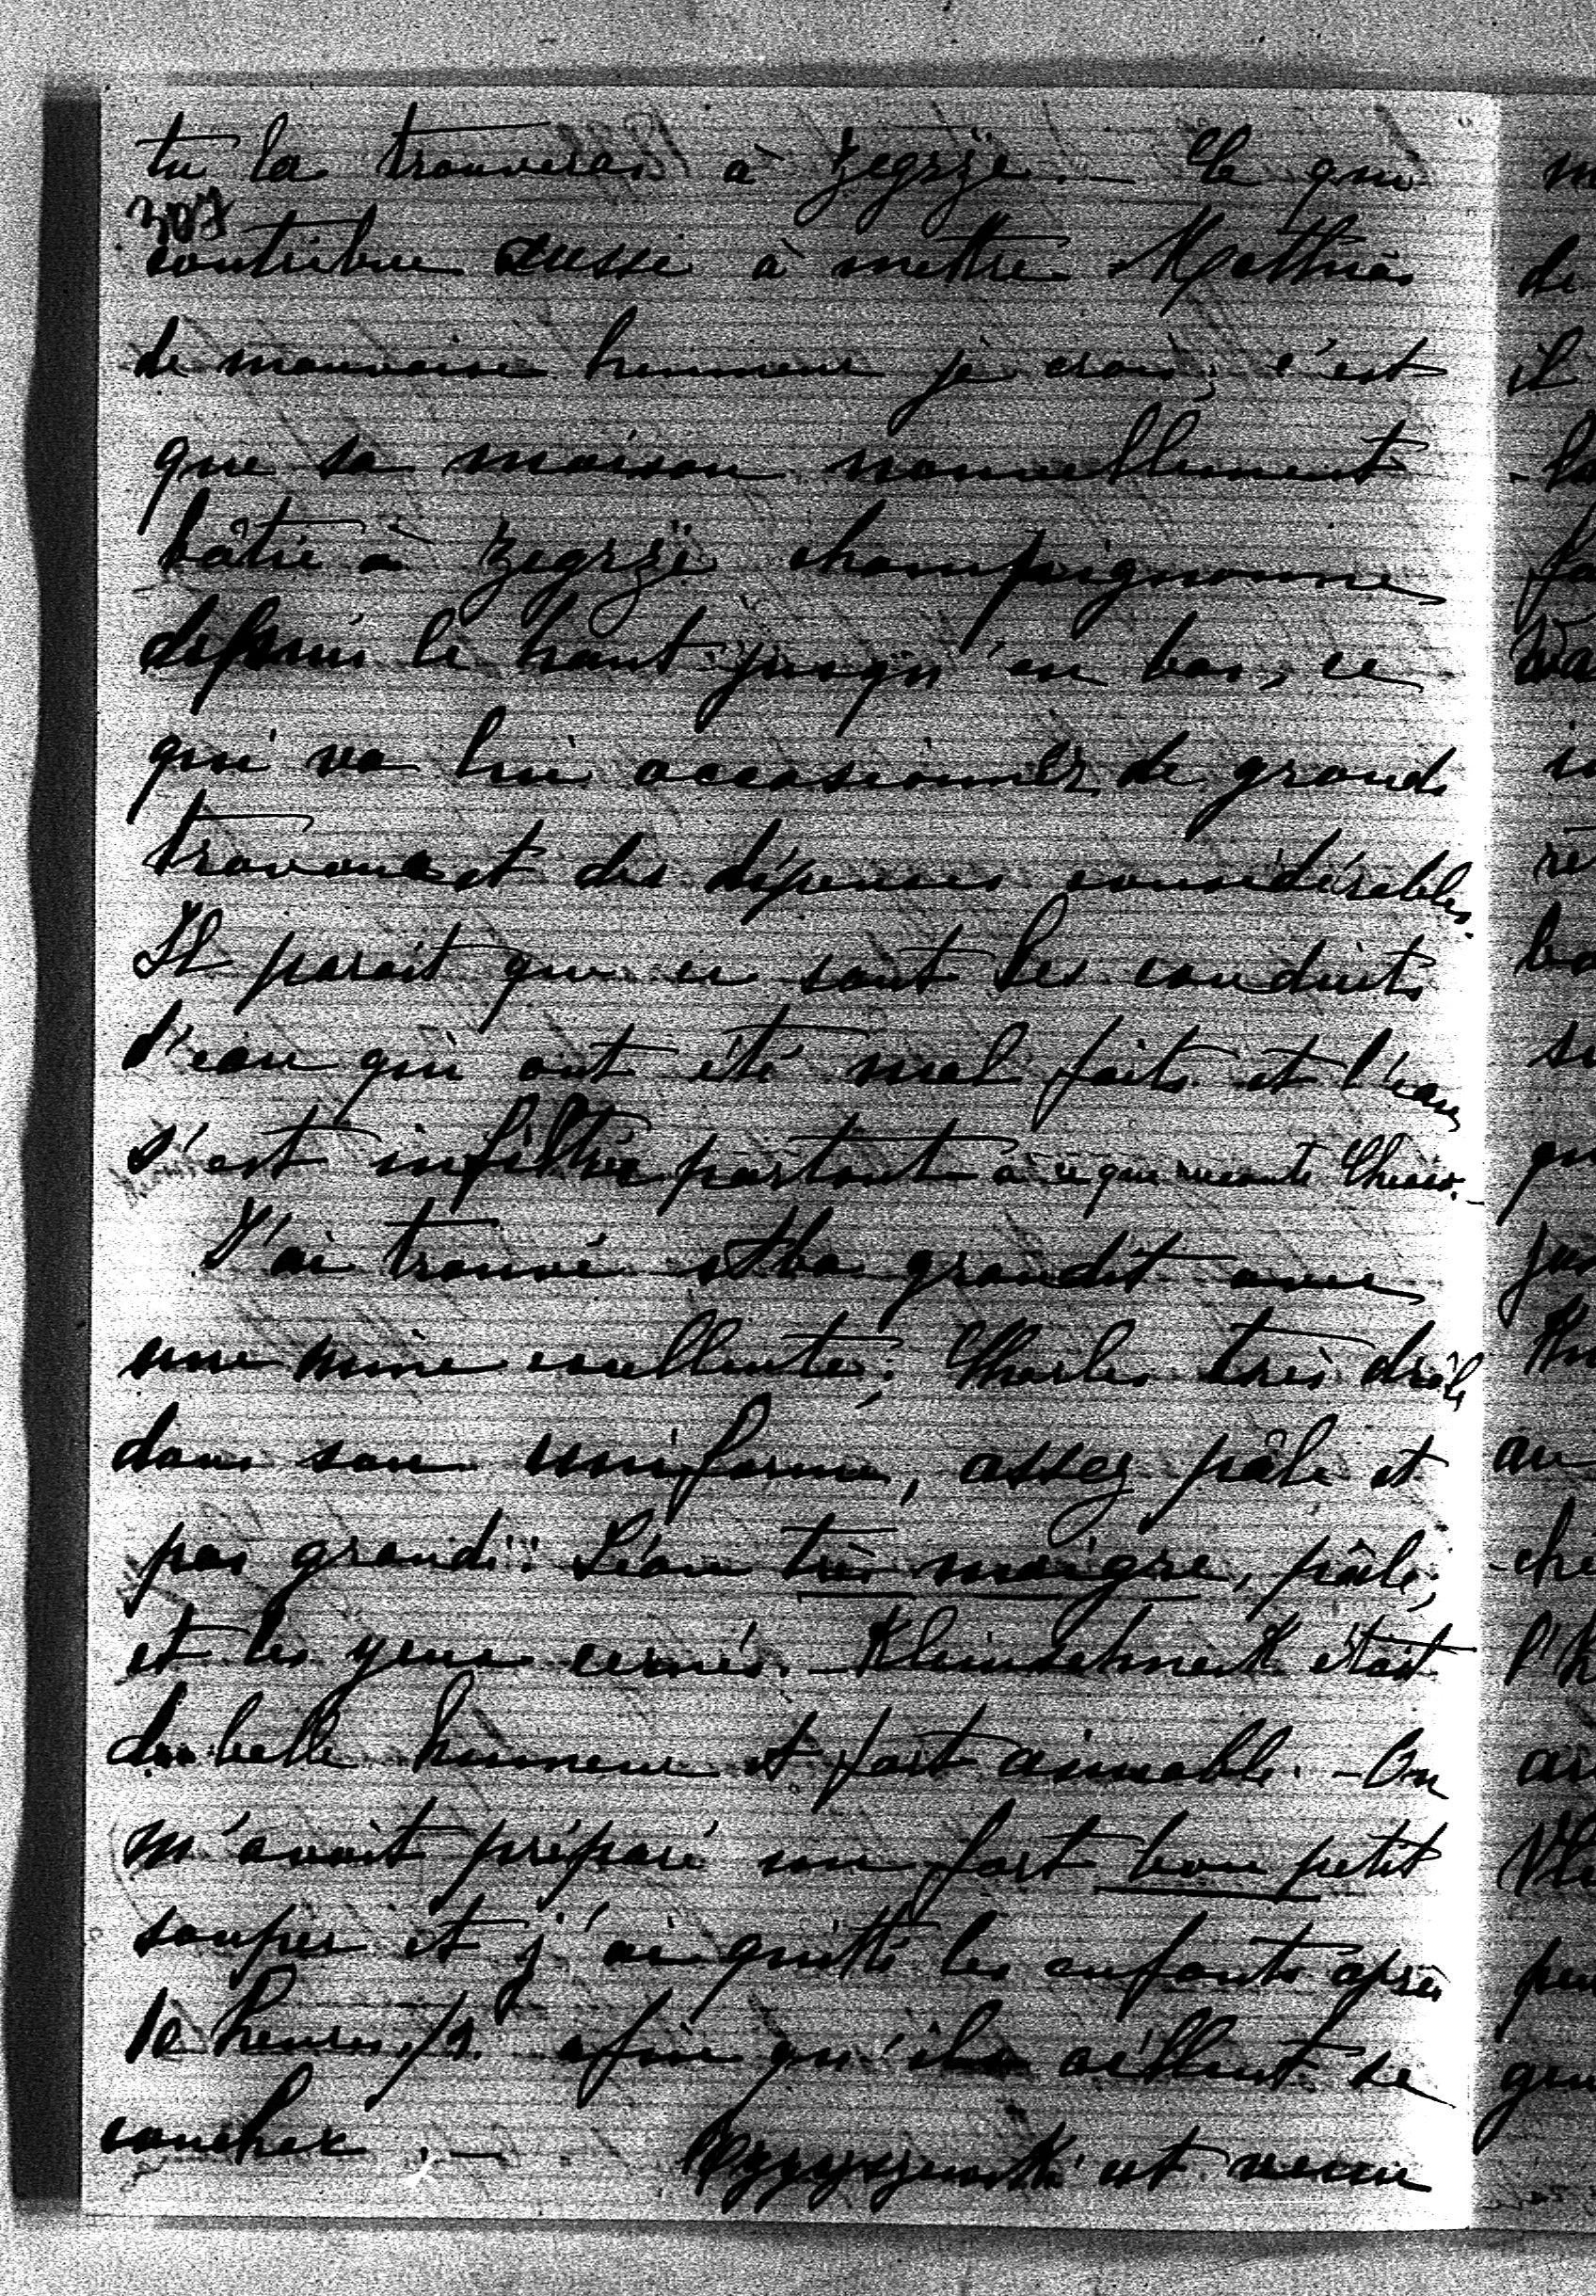 tu la trouveras à Zegrze. — Ce qui
307
contribue aussi à mettre Mathias
de mauvaise humeur je crois, c'est
que sa maison nouvellement
bâtie à Zegrze champignonne
depuis le haut jusqu'en bas, ce
qui va lui occasionner de grands
travaux et des dépenses considérables.
Il parait que ce sont les conduits
d'eau qui ont été mal faits et l'eau
s'est infiltrée partout à ce que raconte
J'ai trouvé grandit avec
une mine excellente; Charles très drôle
dans son uniforme, assez pâle et
pas grandi: Léon très maigre, pâle,
et les yeux cernés. — Kleinschneck était
de belle humeur et fort aimable. — On
m'avait préparé un fort bon petit
souper et j'ai quitté les enfants après
10 heures 1/2 afin qu'ils aillent se
coucher. — est venu